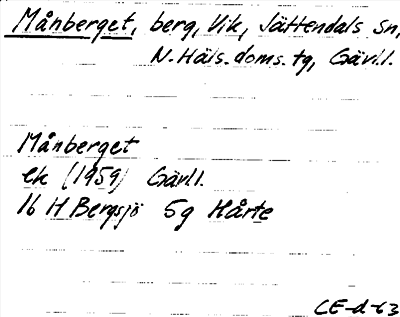 Månberget, berg, Vik, Jättendals sn,
N. Häls. doms. tg, Gävll.
Månberget
ek (1959) Gävll.
16 H Bergsjö 5g Hårte
CE-d-63